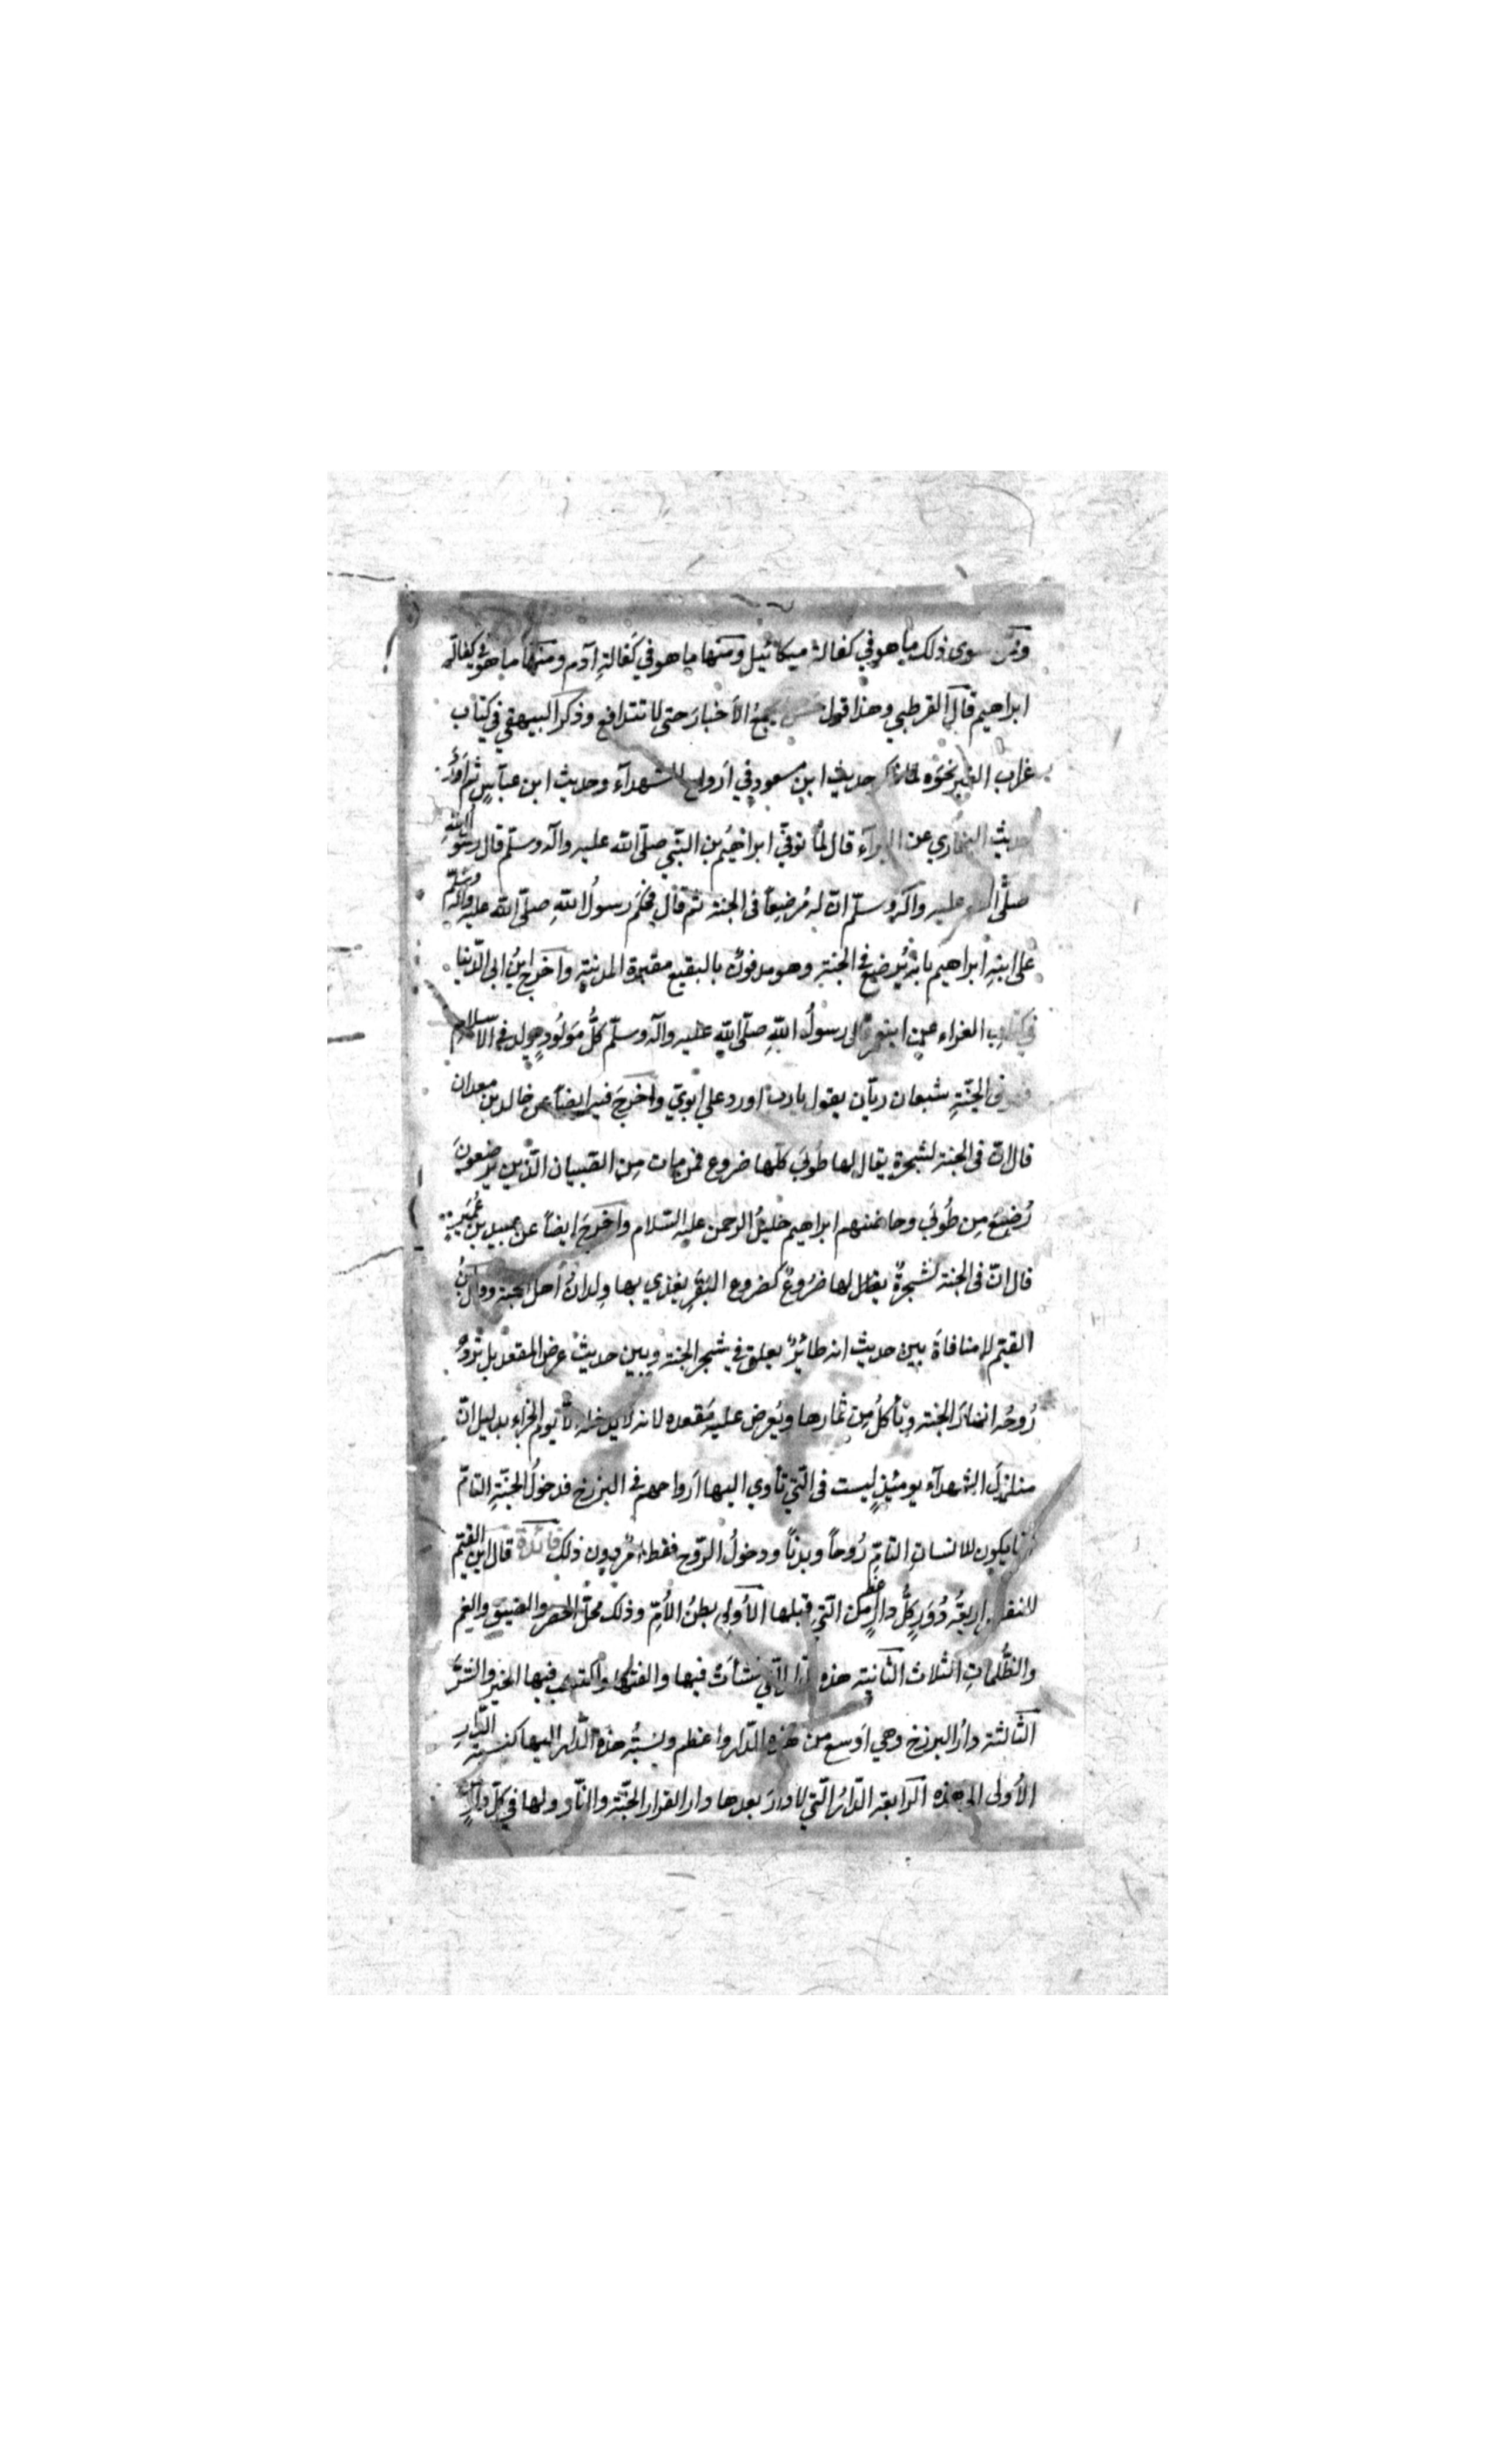 وممن سوى ذلك ما هو في كفالة ميكائيل ومنها ما هو في كفالةِ آدم ومنها ما هو في كفالة
ابراهيم قال القرطبي وهذا قول حسن يجمعُ الأخبارَ حتى لا تتدافع وذكر البيهقي في كتاب
عذاب القبر نحوَه لما ذكر حديث ابن مسعود في اَرواح الشهدآء وحديث ابن عبّاسٍ ثم اَورد
حديث البخاري عن البرآء قال لمّا توفّي ابراهيمُ بن النّبي صلّى الله عليه واله وسلّم قال رسول اللهِ
صلّى الله عليه واله وسلّم انّ له مُرضِعاً في الجنة ثم قال فحكَم رسولُ اللهِ صلّى الله عليه واله وسلّم
على ابنِهِ ابراهيم بانه يُرضع في الجنةِ وهو مدفونٌ بالبقيع مقبرة المدينةِ واخرج ابنُ ابى الدّنيا
في كتاب العزاء عن ابن عمر قال رسولُ اللهِ صلّى اللهِ عليه واله وسلّم كلُّ مَولُودٍ يولد في الاسلامِ
فهو في الجنّةِ شبعان ريّان يقول يا ربّ اورد علي ابويّ واخرجَ فيه ايضاً عن خالد بن معدان
قال انّ في الجنة لشجرة يقال لها طُوبَى كلّها ضروع فمن مات مِن الصّبيان الّذين يرضعونَ
رُضِعَ مِن طُوبَى وحاضنهم ابراهيم خليلُ الرحمن عليه السّلام واخرجَ ايضاً عن عبيد بن عُمَيرٍ
قال انّ في الجنة لشجرةً يقال لها ضرُوعٌ كضروع البَقَرِ يغذي بها وِلدانُ أهل الجنة وقال ابنُ
القيّم لا منافاةَ بين حديث انه طائرٌ يعلق في شجر الجنة وبين حديث عرض المقعد بل تَرِدُ
رُوحُه انهارَ الجنة ويأكلُ مِن ثمارها ويُعرض عليه مَقعده لانه لا يدخله الّا يوم الجزاء بدليل انّ
منازِلَ الشهدآء يومئذٍ ليست في الّتي تأوي اليها اَرواحهم في البرزخ فدخولُ الجنّةِ التامّ
انما يكون للانسانِ التامّ رُوحاً وبدناً ودخولُ الرّوح فقط اَمرٌ دون ذلك فائدة قال ابن القيّم
للنفس اربعةُ دُوَرٍ كلُّ دارٍ اعظم من الّتي قبلها الأولى بطنُ الأمّ وذلك محلّ الحصر والضيق والغم
والظُّلماتِ الثّلاث الثّانية هذه الدار الّتي نشأت فيها والفتها واكتسب فيها الخير والشرّ
الثّالثة دارُ البرزخ وهي اَوسع من هذه الدّار واعظم ونسبَةُ هذه الدّار اليها كنسبة الدّارِ
الأولى الى هذه الرّابعة الدّارُ الّتي لا دارَ بعدها دار القرار الجنّة والنّار ولها في كلّ دارٍ